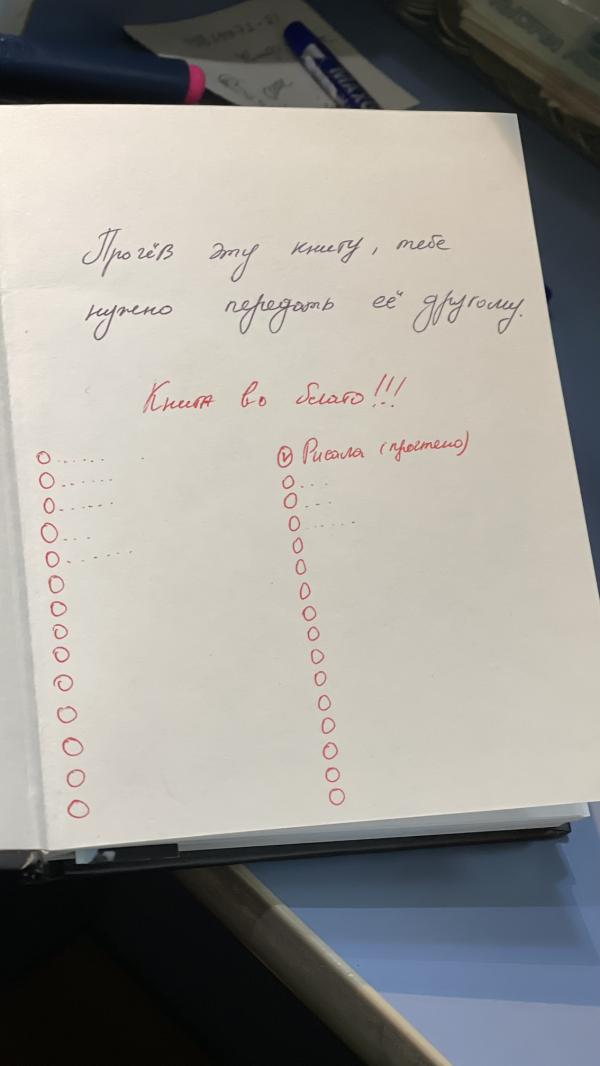 Прочёв эту книгу, тебе
нужно передать её другому.
Книга во благо!!!
Рисала (прочтено)